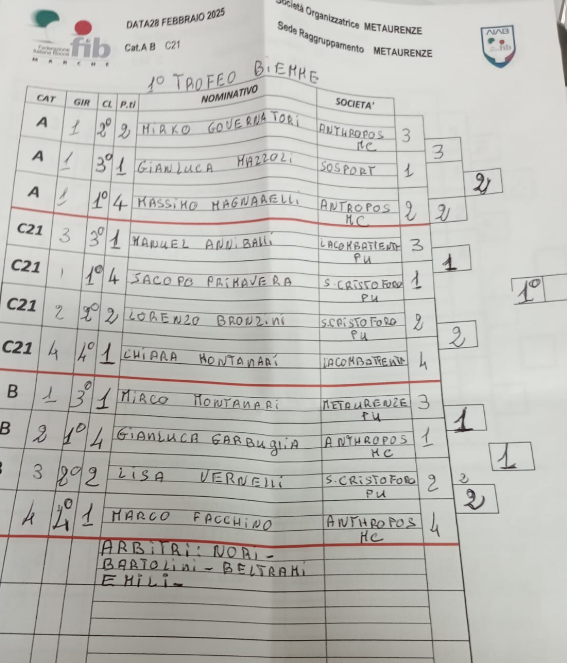 Società Organizzatrice METAURENZE
DATA28 FEBBRAIO 2025
Sede Raggruppamento METAURENZE
fib
MARCHE
Cat.A B C21
1° TROFEO BIEMME
CAT GIR CL P.ti NOMINATIVO SOCIETA'
A 1 2° 2 MIRKO GOVERNATORI ANTHROPOS MC 3
3
A 1 3° 1 GIANLUCA MAZZOLI SOSPORT 1
2
A 1 1° 4 MASSIMO MAGNARELLI ANTROPOS MC 2 2
C21 3 3° 1 MANUEL ANNIBALLI LACOMBATTENTE PU 3
1
C21 1 1° 4 JACOPO PRIMAVERA S.CRISTOFORO PU 1
1°
C21 2 2° 2 LORENZO BRONZINI S.CRISTOFORO PU 2
2
C21 4 4° 1 CHIARA MONTANARI LACOMBATTENTE 4
B 1 3° 1 MIRCO MONTANARI METAURENZE PU 3
1
B 2 1° 4 GIANLUCA GARBUGLIA ANTHROPOS MC 1
1
3 2° 2 LISA VERNELLI S.CRISTOFORO PU 2 2
2
4 4° 1 MARCO FACCHINO ANTHROPOS MC 4
ARBITRI: NORI-
BARTOLINI-BELTRAMI
EMILI-